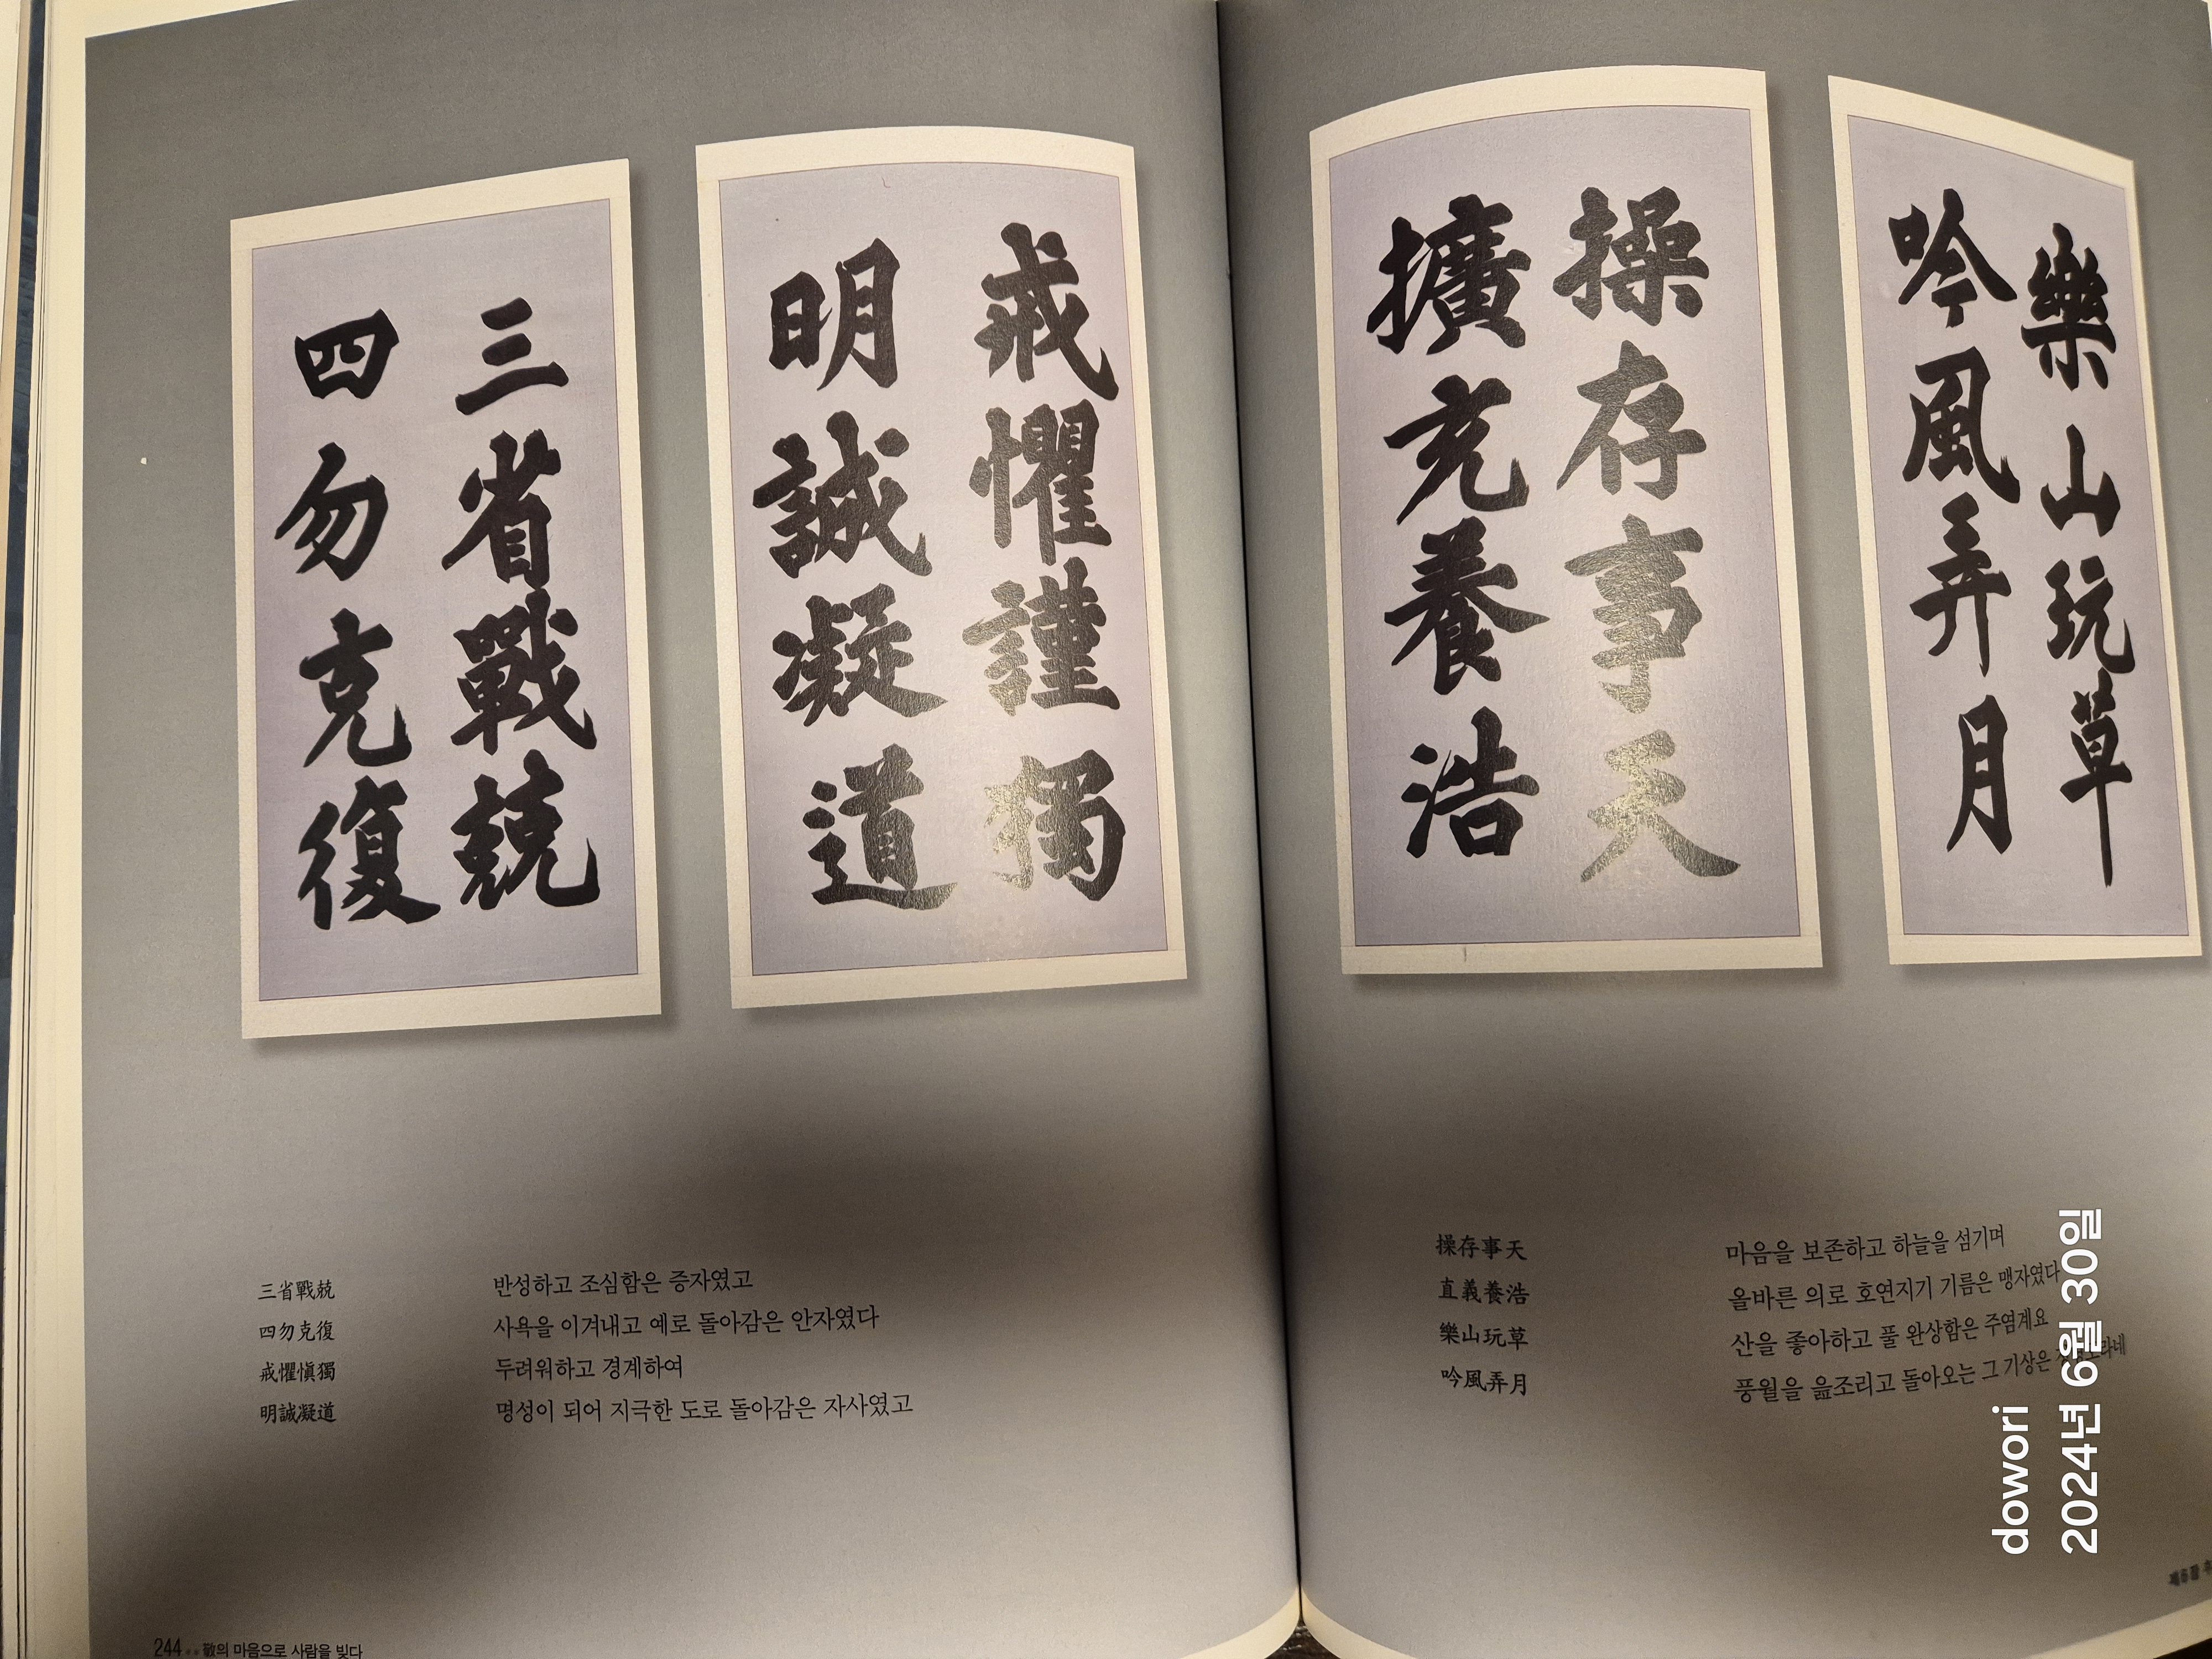 三省戰兢
四勿克復
戒懼謹獨
明誠凝道
操存事天
擴充養浩
樂山玩草
吟風弄月
三省戰兢 반성하고 조심함은 증자였고
四勿克復 사욕을 이겨내고 예로 돌아감은 안자였다
戒懼愼獨 두려워하고 경계하여
明誠凝道 명성이 되어 지극한 도로 돌아감은 자사였고
244 敬의 마음으로 사람을 빚다
操存事天 마음을 보존하고 하늘을 섬기며
直義養浩 올바른 의로 호연지기 기름은 맹자였다
樂山玩草 산을 좋아하고 풀 완상함은 주염계요
吟風弄月 풍월을 읊조리고 돌아오는 그 기상은
dowori
2024년 6월 30일